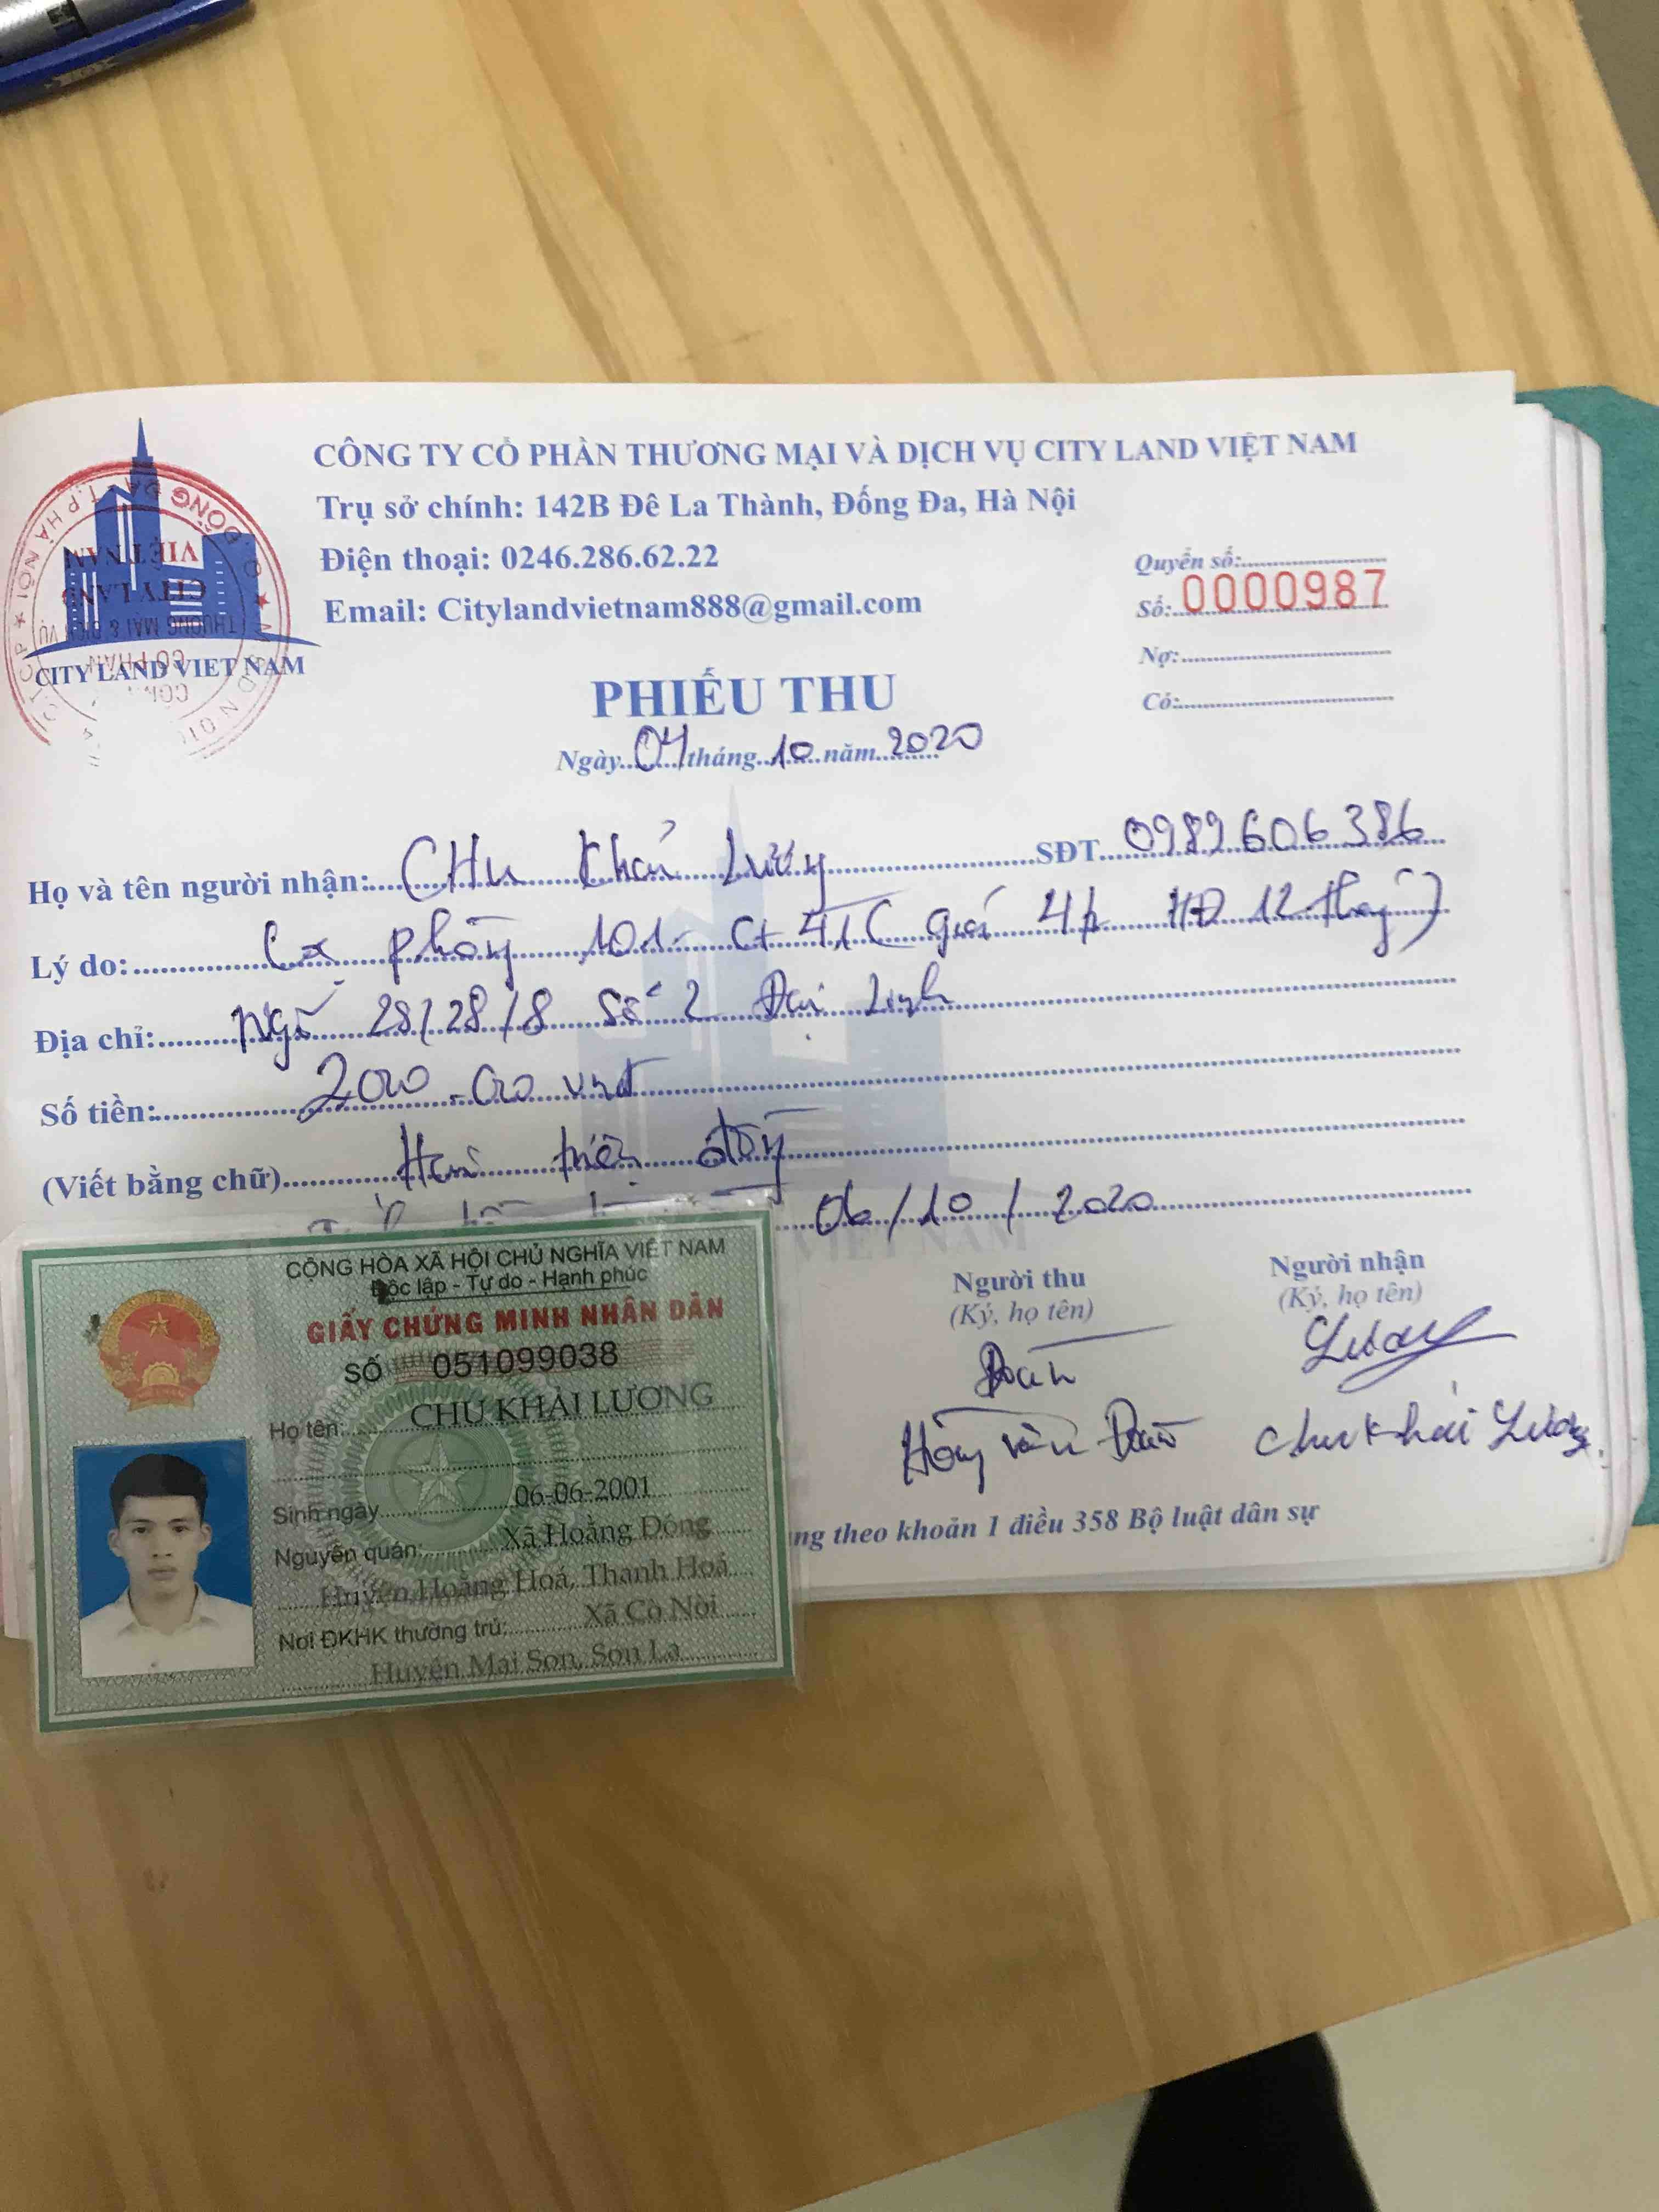 CÔNG TY CỔ PHẦN THƯƠNG MẠI VÀ DỊCH VỤ CITY LAND VIỆT NAM
Trụ sở chính: 142B Đê La Thành, Đống Đa, Hà Nội
Điện thoại: 0246.286.62.22
Email: Citylandvietnam888@gmail.com
Quyển số:
Số: 0000987
Nợ:
Có:
CITY LAND VIET NAM
PHIẾU THU
Ngày 04 tháng 10 năm 2020
Họ và tên người nhận: CHu Khải Lương SĐT 0982606386
Lý do: Cọc phòng 101 - Ct 4TC giá 4tr HĐ 12 tháng)
Địa chỉ: Ngõ 28/28/8 Số 2 Đại Linh
Số tiền: 2000.000 vnđ
(Viết bằng chữ) Hai triệu đồng
06/10/2020
Người thu
(Ký, họ tên)
Người nhận
(Ký, họ tên)
Chu Khải Lương
theo khoản 1 điều 358 Bộ luật dân sự
CỘNG HÒA XÃ HỘI CHỦ NGHĨA VIỆT NAM
Độc lập - Tự do - Hạnh phúc
GIẤY CHỨNG MINH NHÂN DÂN
SỐ 051099038
Họ tên: CHU KHẢI LƯƠNG
Sinh ngày 06-06-2001
Nguyên quán: Xã Hoằng Đông
Huyện Hoằng Hoá, Thanh Hoá
Nơi ĐKHK thường trú: Xã Cò Nòi
Huyện Mai Sơn, Sơn La